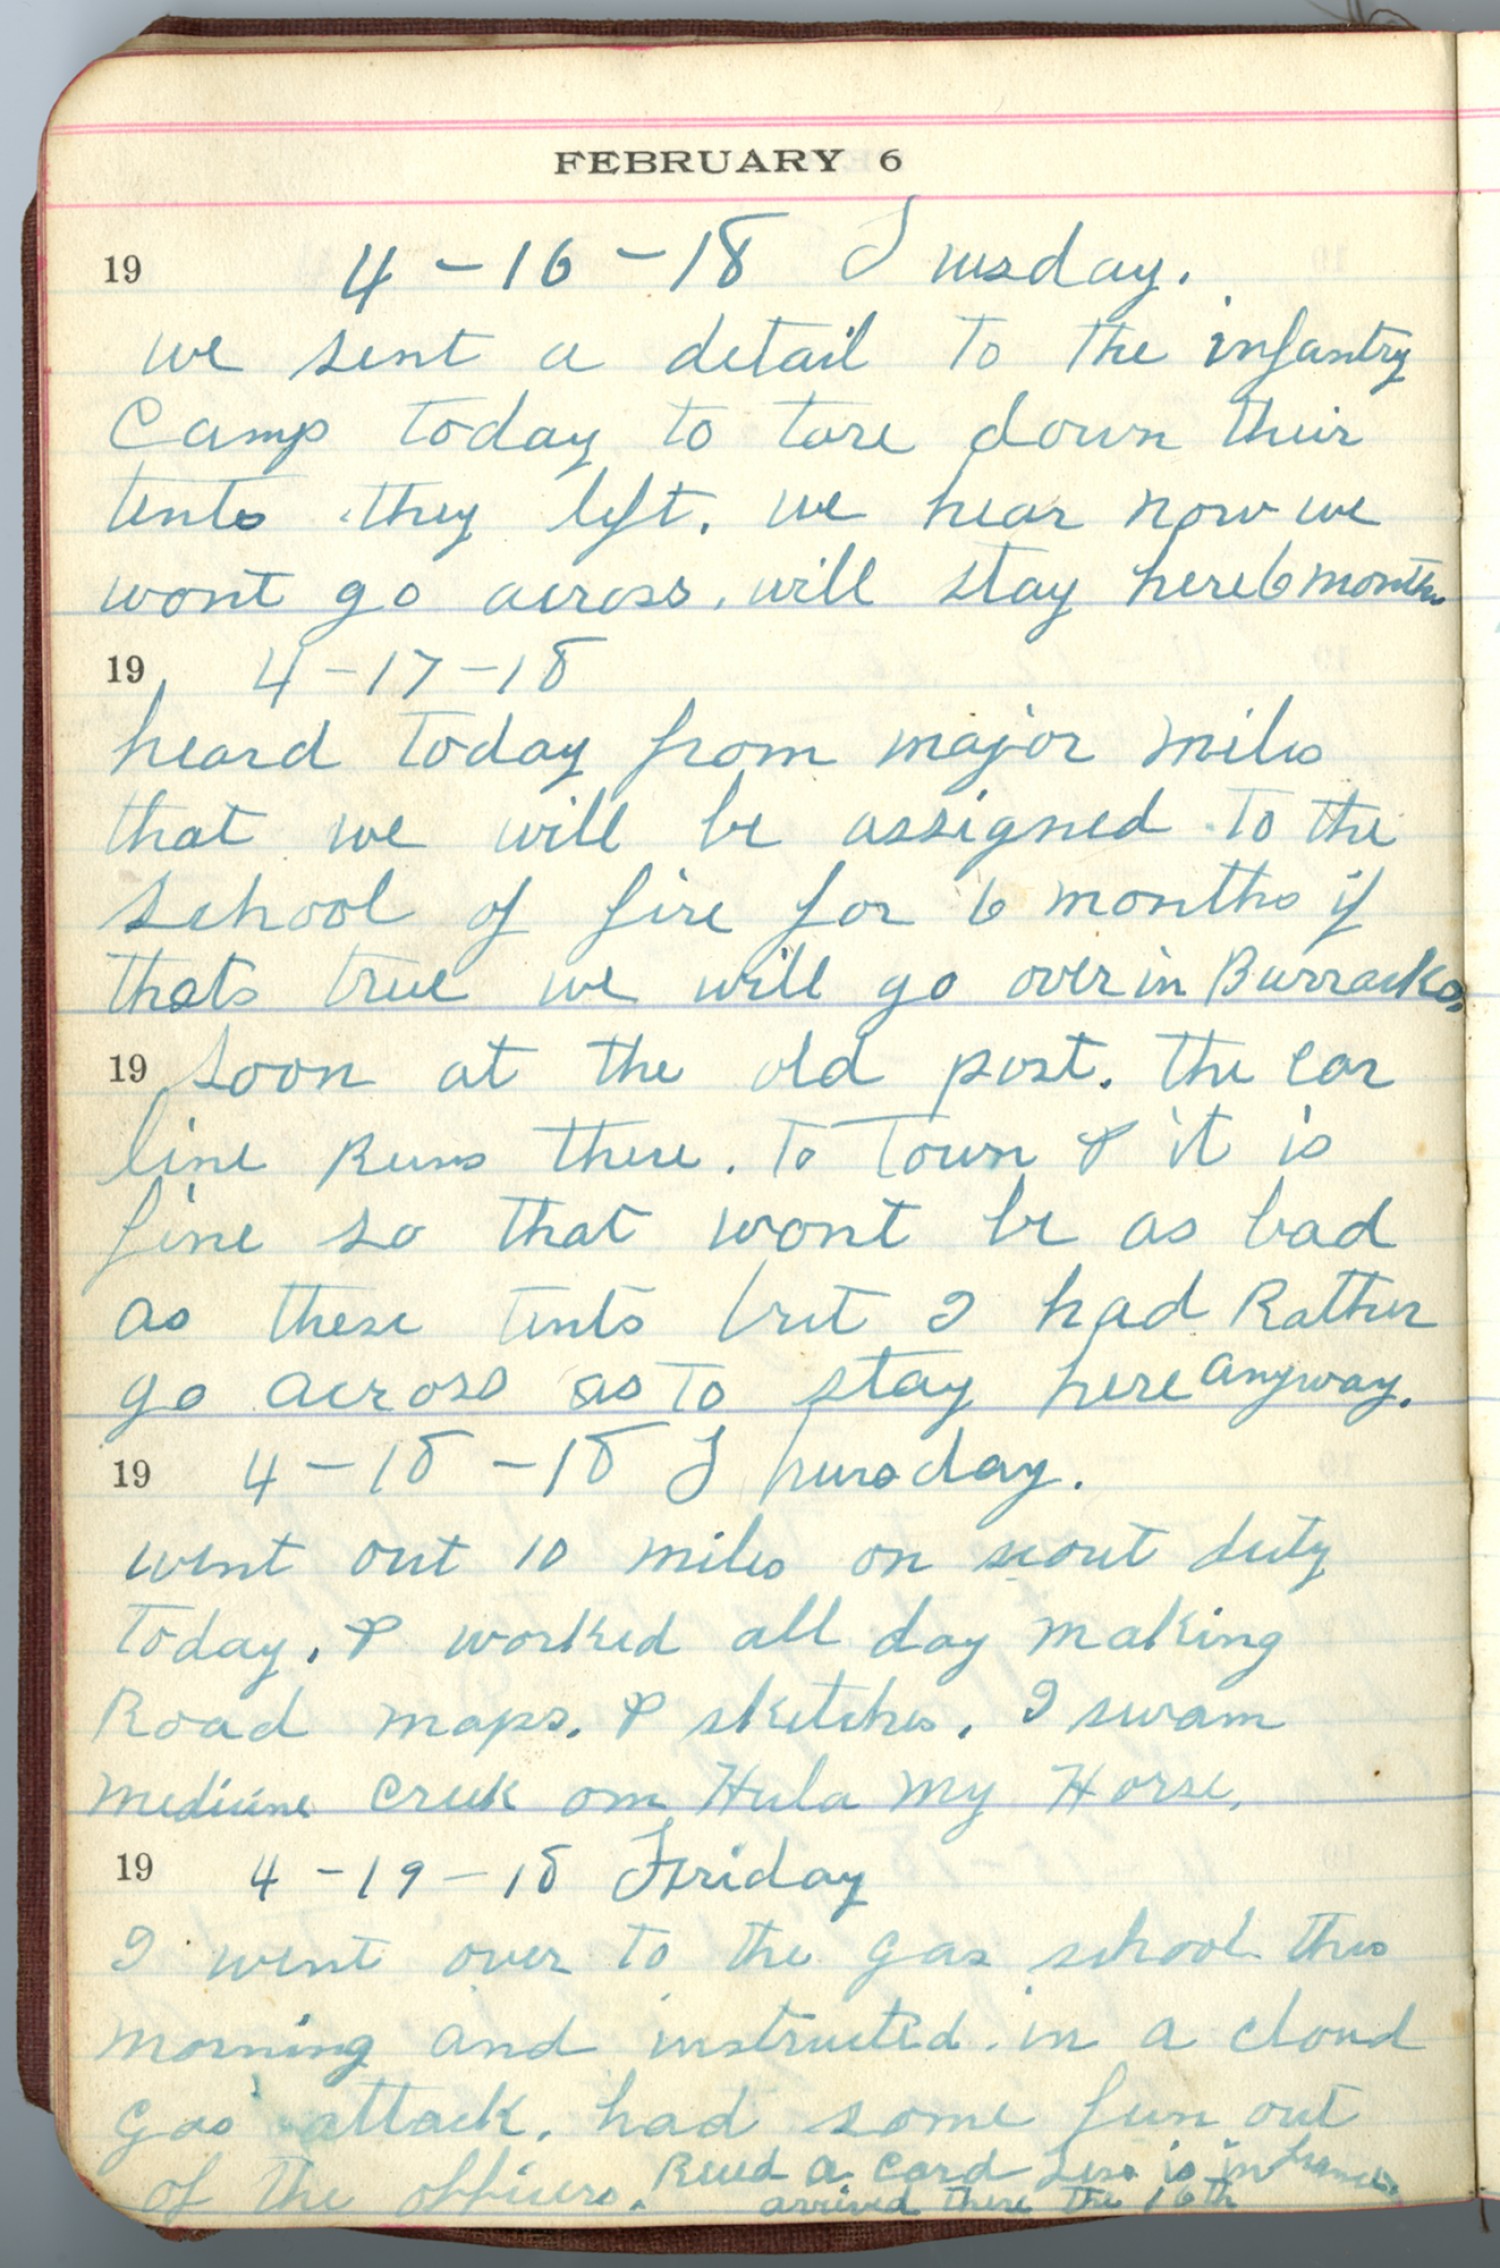 FEBRUARY 6
19 4-16-18 Tuesday.
we sent a detail to the infantry
Camp today to tare down their
tents they left. we hear now we
wont go across. will stay here 6 months
19 4-17-18
heard today from major miles
that we will be assigned to the
school of fire for 6 months if
thats true we will go over in Barracks,
19 soon at the old post. the car
line Runs there. to Town & it is
fine so that wont be as bad
as these tents but I had Rather
go across as to stay here anyway.
19 4-18-18 Thursday.
went out 10 miles on scout duty
today. & worked all day making
Road maps. & sketches. I swam
medicine creek on Hula my Horse.
19 4-19-18 Friday
I went over to the gas school this
morning and instructed in a cloud
gas attack. had some fun out
of the officers. Recd a card is in france.
arrived there the 16th